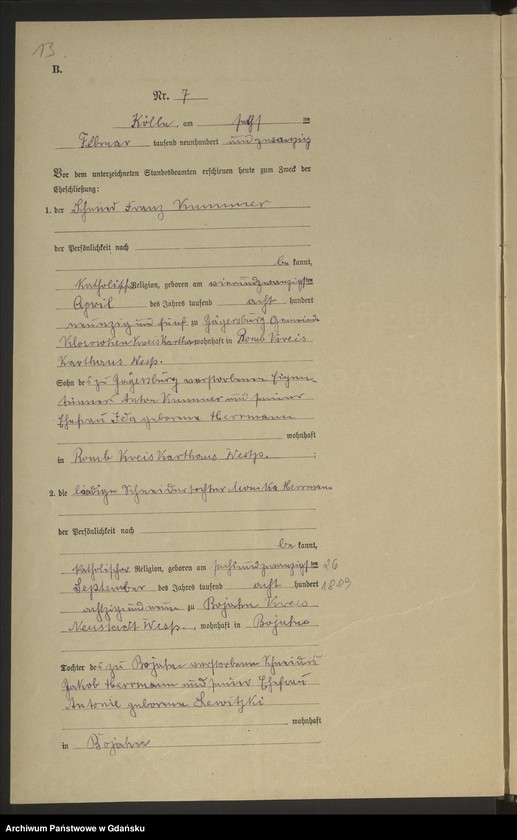 13
B.
Nr. 7
Kölln, am sechsten
Februar tausend neunhundert und zwanzig
Vor dem unterzeichneten Standesbeamten erschienen heute zum Zweck der
Eheschließung:
1. der Schmied Franz Kummer
der Persönlichkeit nach
be kannt,
katholischer Religion, geboren am vierundzwanzigsten
April des Jahres tausend acht hundert
neunzig und fünf zu Jägersburg Gemeinde
Kreis Kartha wohnhaft in Romb Kreis
Karthaus Westp.
Sohn des zu Jägersburg verstorbenen Eigen-
tümers Anton Kummer und seiner
Ehefrau Ida geborene Herrmann
wohnhaft
in Romb Kreis Karthaus Westp. ;
2. die ledige Schneidertochter Monika Herrmann
der Persönlichkeit nach
be kannt,
katholischer Religion, geboren am sechsundzwanzigsten 26
September des Jahres tausend acht hundert 1889
achtzig und neun zu Bojahn Kreis
Neustadt Westp., wohnhaft in Bojahn
Tochter des zu Bojahn verstorbenen Schneiders
Jakob Herrmann und seiner Ehefrau
Antonie geborene Lewitzki
wohnhaft
in Bojahn
Archiwum Państwowe w Gdańsku